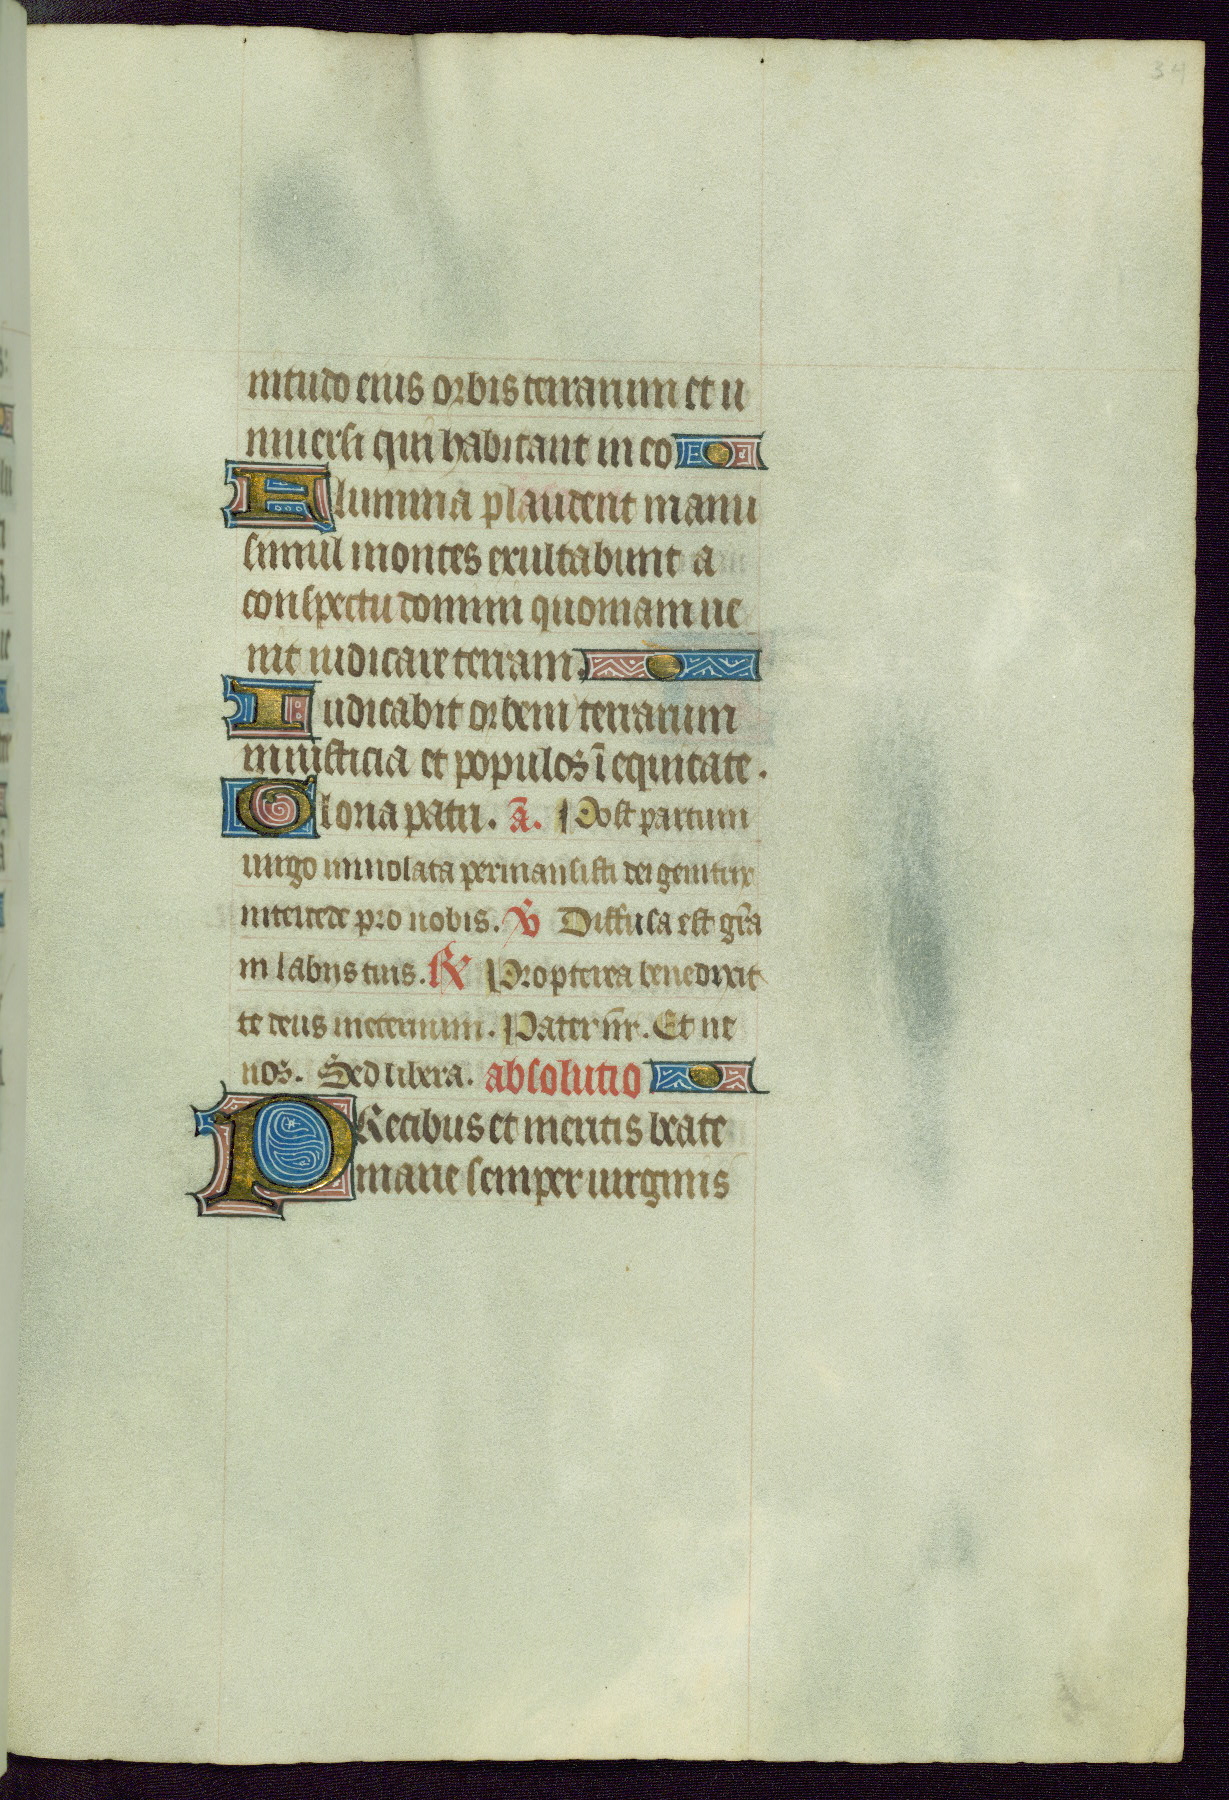 34
nitudo eius orbis terrarum et u
niuersi qui habitant in eo
Flumina plaudent manu
simul montes exultabunt a
conspectu domini quoniam ue
nit iudicare terram.
Iudicabit orbem terrarum
in iusticia et populos ī equitate.
Gloria patri. ā. Post partum
uirgo inuiolata permansisti dei genitrix
intercede pro nobis. ℣ Diffusa est gr̄a
in labijs tuis. ℟ Propterea benedixit
te deus ineternum. Pater nr̄. Et ne
nos. Sed libera. absolutio
PRecibus et meritis beate
marie semper uirginis